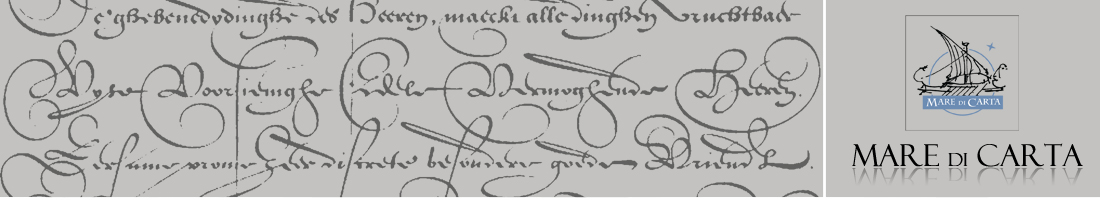 e ghebenedydinghe des Heeren, maeckt alle dinghen Vruchtbaer
Wyse Voorsienighe Eedele Vermoghende Heeren.
Eersame vrome zeer discrete besondere goede Vriend
MARE DI CARTA
MARE DI CARTA